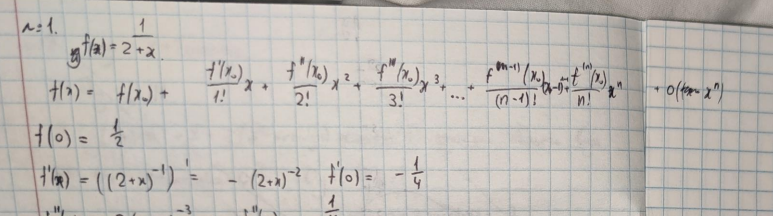 n=1.
f(x) = 1/(2+x).
f(x) = f(x₀) + f'(x₀)/1! x + f''(x₀)/2! x² + f'''(x₀)/3! x³ + ... + f⁽ⁿ⁻¹⁾(x₀)/(n-1)! + f⁽ⁿ⁾(x₀)/n! xⁿ + o(xⁿ)
f(0) = 1/2
f'(x) = ((2+x)⁻¹)' = - (2+x)⁻² f'(0) = - 1/4